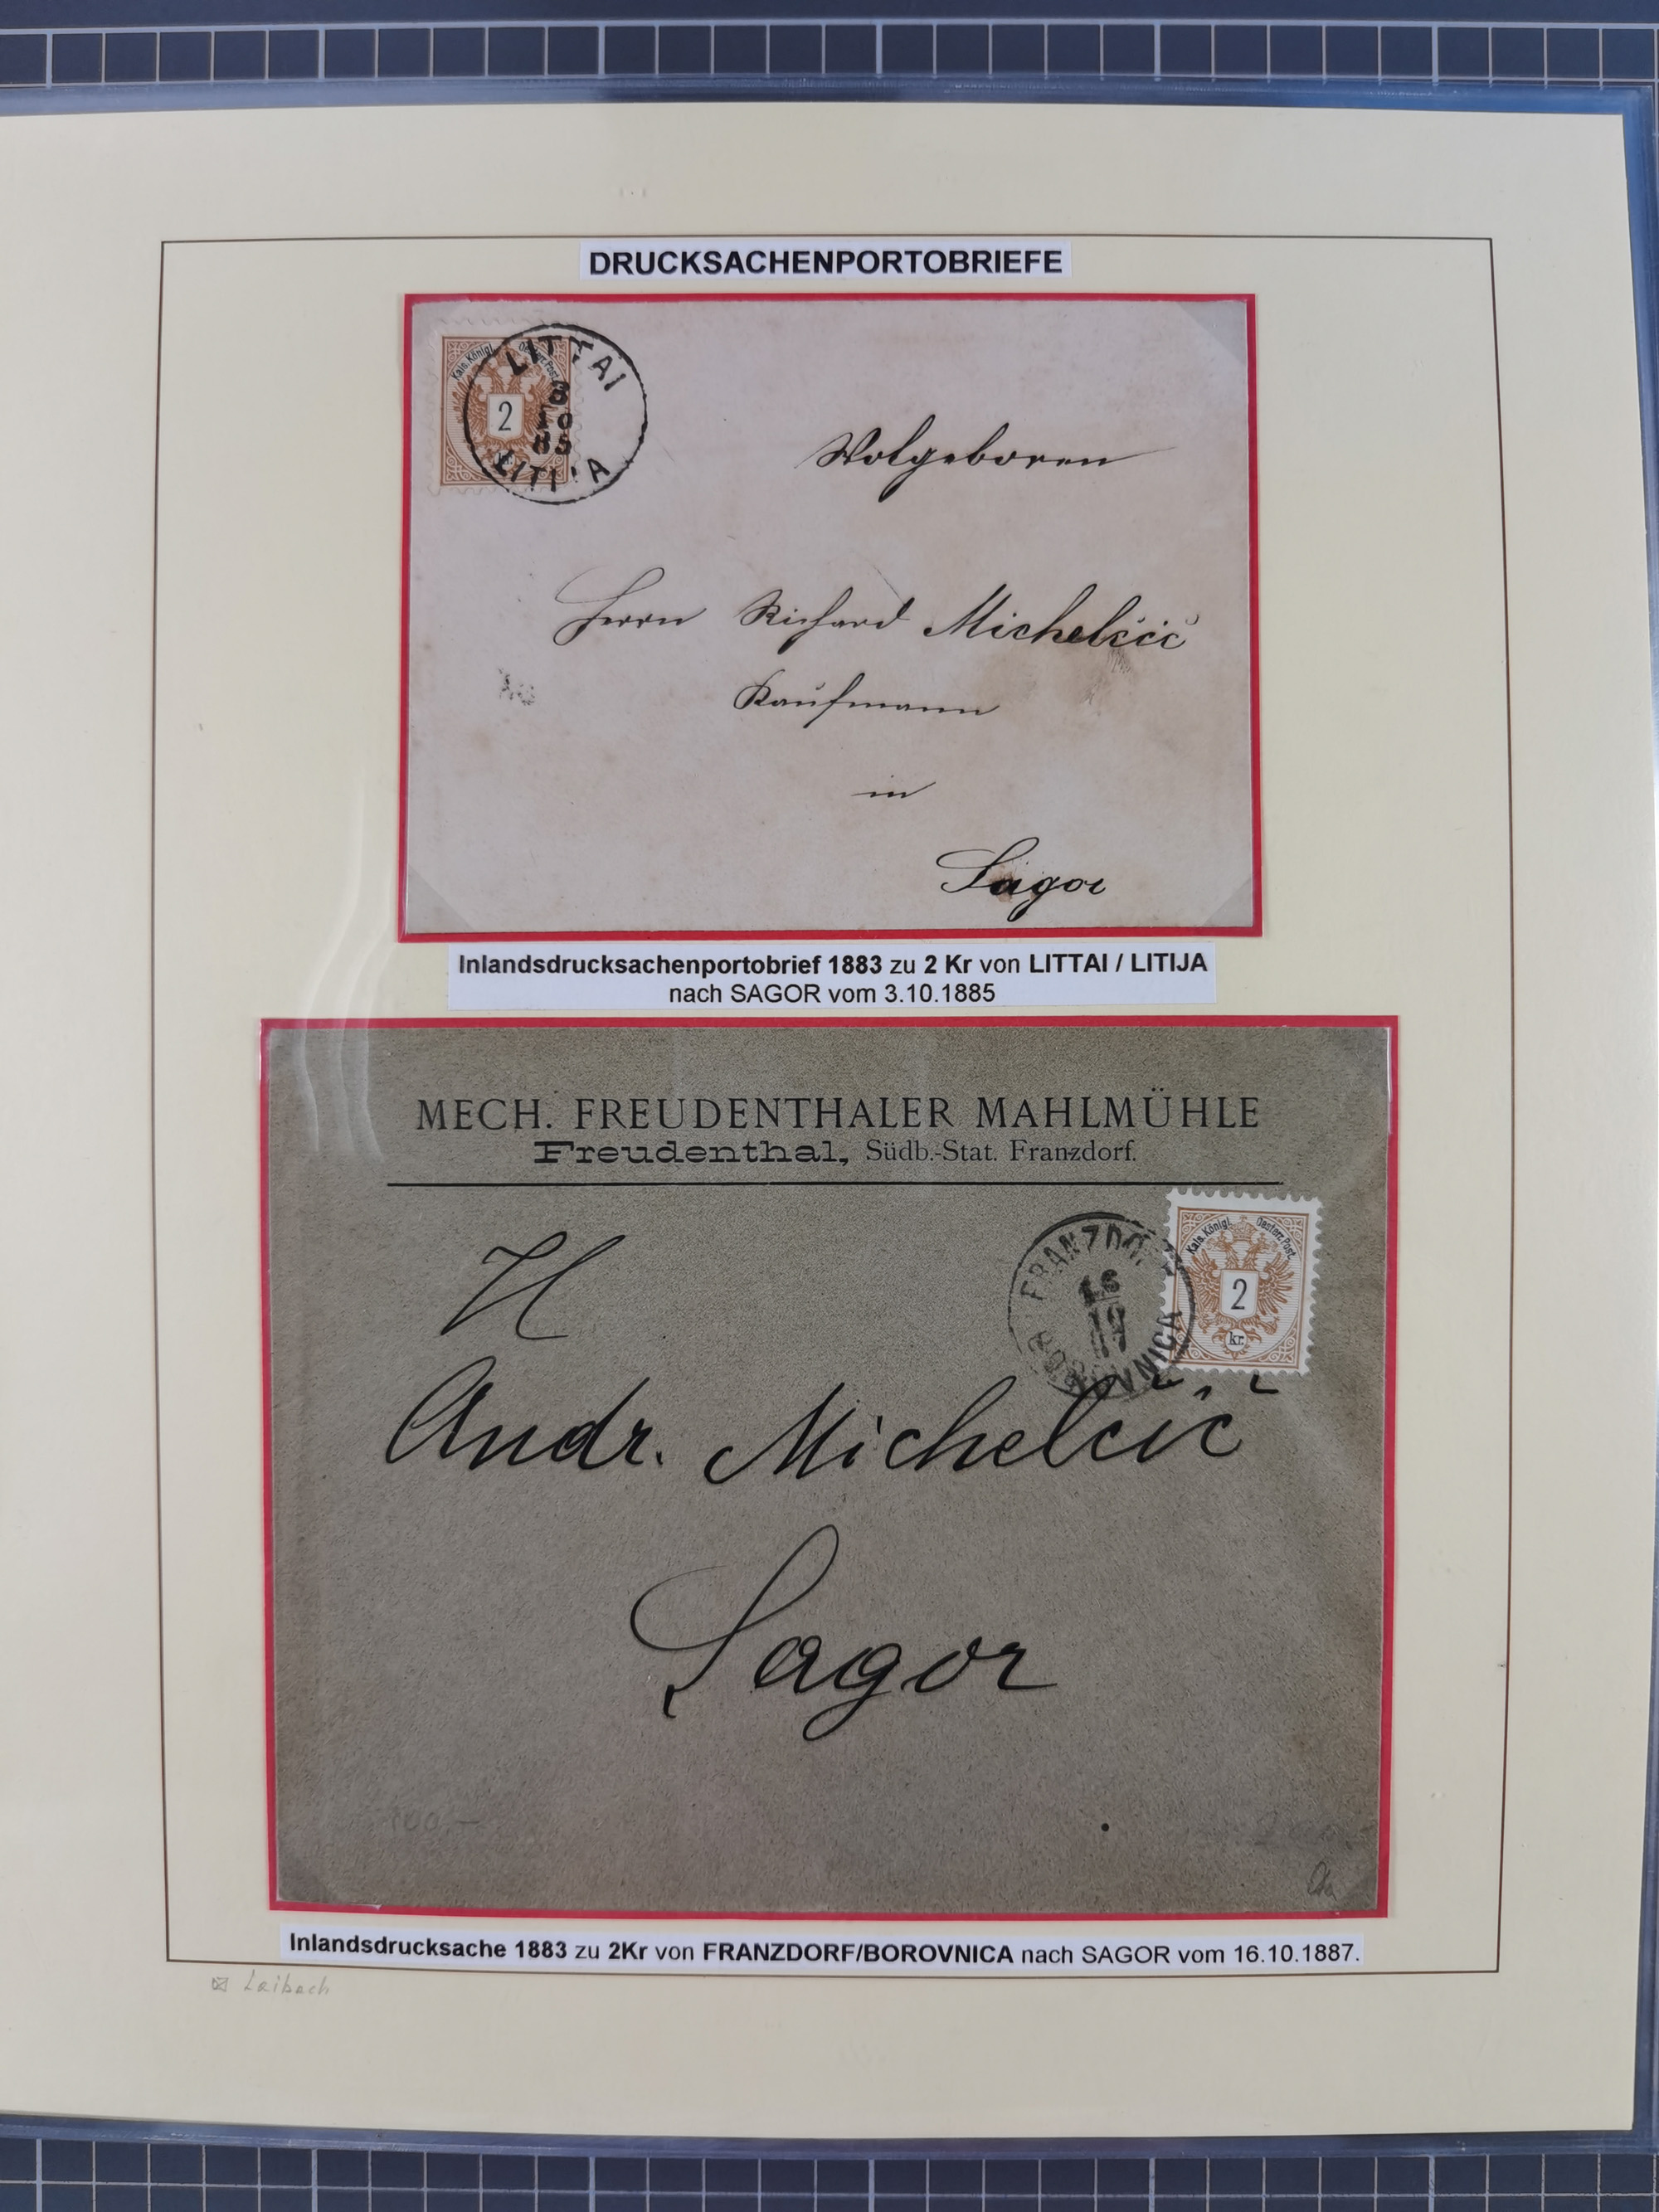 DRUCKSACHENPORTOBRIEFE
Kais. Königl. Oesterr. Post.
2
LITTAI
3
10
85
LITIJA
Wolgeboren
Herrn Richard Michelčič
Kaufmann
in
Sagor
Inlandsdrucksachenportobrief 1883 zu 2 Kr von LITTAI / LITIJA
nach SAGOR vom 3.10.1885
MECH. FREUDENTHALER MAHLMÜHLE
Freudenthal, Südb.-Stat. Franzdorf.
Kais. Königl. Oesterr. Post.
2
kr.
FRANZDORF
16
10
BOROVNICA
H
Andr. Michelčič
Sagor
100,—
Inlandsdrucksache 1883 zu 2Kr von FRANZDORF/BOROVNICA nach SAGOR vom 16.10.1887.
Laibach